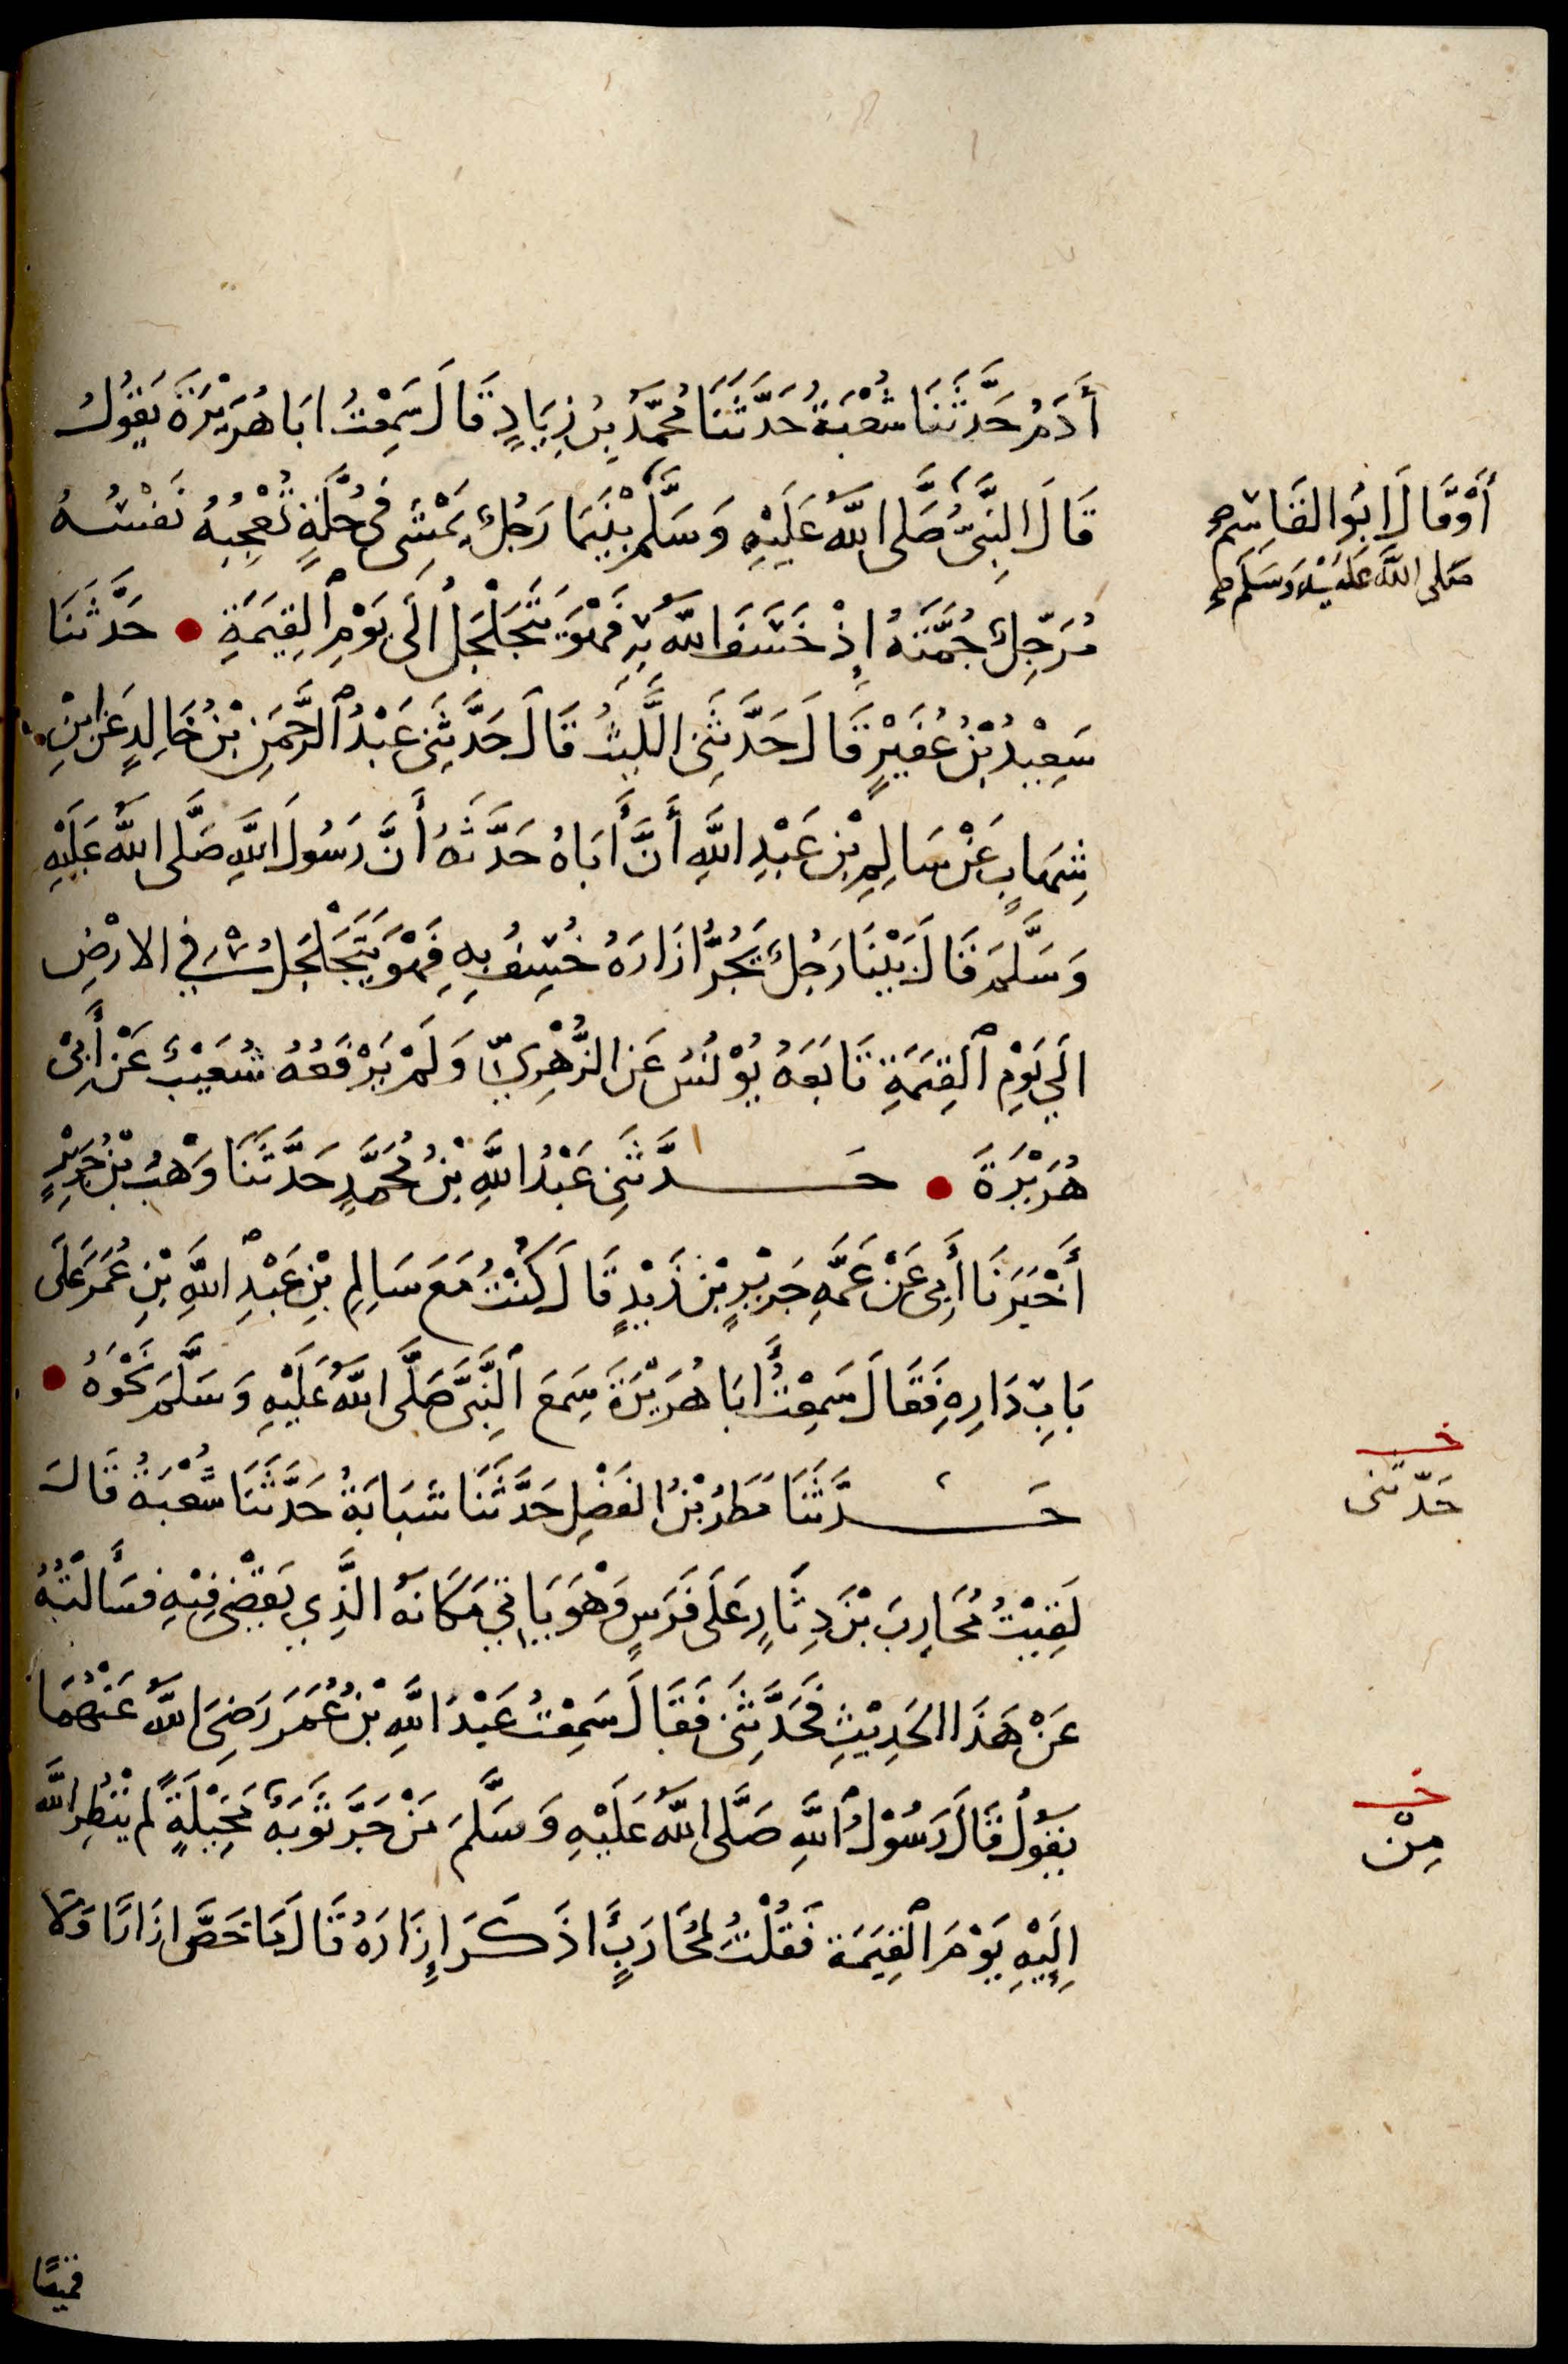 أَدَمُ حَدَّثَنَا شُعْبَةُ حَدَّثَنَا مُحَمَّدُ بْنُ زِيَادٍ قَالَ سَمِعْتُ ابَا هُرَيْرَةَ يَقُولُ
قَالَ النَّبِيُّ صَلَّى اللهُ عَلَيْهِ وَسَلَّمَ بَيْنَمَا رَجُلٌ يَمْشِى فِى حُلَّةٍ تُعْجِبُهُ نَفْسُهُ
مُرَجِّلٌ جُمَّتَهُ إِذْ خَسَفَ اللهُ بِهِ فَهْوَ يَتَجَلْجَلُ الَى يَوْمِ الْقِيمَةِ • حَدَّثَنَا
سَعِيْدُ بْنُ عُفَيْرٍ قَالَ حَدَّثَنِى اللَّيْثُ قَالَ حَدَّثَنِى عَبْدُ الرَّحْمَنِ بْنُ خَالِدٍ عَنِ ابْنِ
شِهَابٍ عَنْ سَالِمِ بْنِ عَبْدِ اللهِ أَنَّ أَبَاهُ حَدَّثَهُ أَنَّ رَسُولَ اللهِ صَلَّى اللهُ عَلَيْهِ
وَسَلَّمَ قَالَ بَيْنَا رَجُلٌ يَجُرُّ ازَارَهُ خُسِفَ بِهِ فَهْوَ يَتَجَلْجَلُ فِي الارْضِ
الَي يَوْمِ الْقِيمَةِ تَابَعَهُ يُوْنُسُ عَنِ الزُّهْرِيِّ وَلَمْ يَرْفَعْهُ شُعَيْبٌ عَنْ أَبِىْ
هُرَيْرَةَ • حَدَّثَنِى عَبْدُ اللهِ بْنُ مُحَمَّدٍ حَدَّثَنَا وَهْبُ بْنُ جَرِيْرٍ
أَخْبَرَنَا أَبِى عَنْ عَمِّهِ جَرِيْرِ بْنِ زَيْدٍ قَالَ كُنْتُ مَعَ سَالِمِ بْنِ عَبْدِ اللهِ بْنِ عُمَرَ عَلَى
بَابِ دَارِهِ فَقَالَ سَمِعْتُ أَبَا هُرَيْرَةَ سَمِعَ النَّبِىَّ صَلَّى اللهُ عَلَيْهِ وَسَلَّمَ نَحْوَهُ •
حَدَّثَنَا مَطَرُ بْنُ الفَضْلِ حَدَّثَنَا شَبَابَةُ حَدَّثَنَا شُعْبَةُ قَالَ
لَقِيْتُ مُحَارِبَ بْنَ دِثَارٍ عَلَى فَرَسٍ وَهْوَ يَاتِي مَكَانَهُ الَّذِي يَقْضِى فِيْهِ فَسَأَلْتُهُ
عَنْ هَذَا الحَدِيْثِ فَحَدَّثَنِى فَقَالَ سَمِعْتُ عَبْدَ اللهِ بْنَ عُمَرَ رَضِىَ اللهُ عَنْهُمَا
يَقُولُ قَالَ رَسُوْلُ اللهِ صَلَّى اللهُ عَلَيْهِ وَسَلَّمَ مَنْ جَرَّ ثَوْبَهُ مَخِيْلَةً لم يَنْظُرِ اللهُ
اِلَيْهِ يَوْمَ الْقِيَمَة فَقُلْتُ لِمُحَارِبٍ أَذَكَرَ إِزَارَهُ قَالَ مَا خَصَّ ازَارًا وَلَا
قميصًا
أَوْ قَالَ ابَو القَاسِم
صَلى الله عَلَيْهِ وَسَلم
خـ
حَدّثنى
خـ
مِنْ